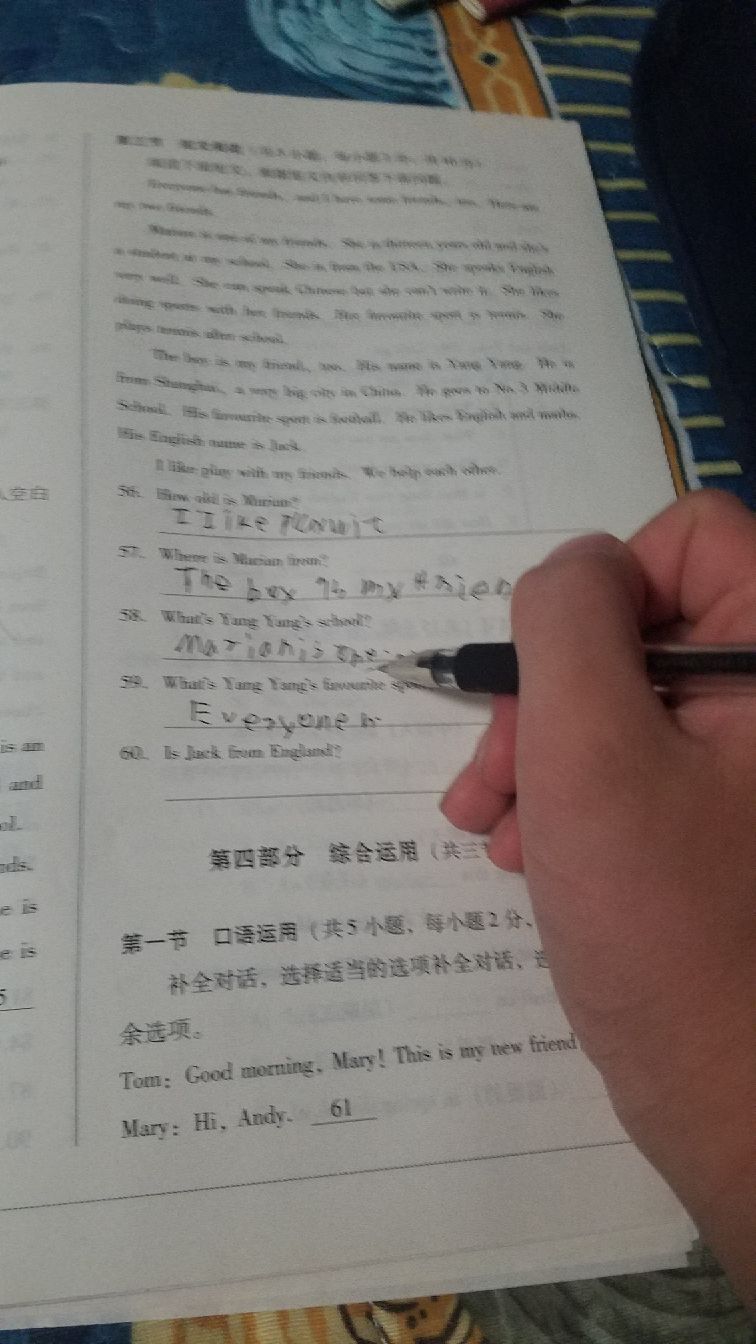 Everyone has friends, and I have some friends, too. Here are
my two friends.
Marian is one of my friends. She is thirteen years old and she's
a student in my school. She is from the USA. She speaks English
very well. She can speak Chinese but she can't write it. She likes
doing sports with her friends. Her favourite sport is tennis. She
plays tennis after school.
The boy is my friend, too. His name is Yang Yang. He is
from Shanghai, a very big city in China. He goes to No.3 Middle
School. His favourite sport is football. He likes English and maths.
His English name is Jack.
I like play with my friends. We help each other.
入空白
56. How old is Marian?
I Iike
57. Where is Marian from?
The box is my
58. What's Yang Yang's school?
Marian is the
59. What's Yang Yang's favourite
Everyone h
60. Is Jack from England?
is an
and
ol.
nds.
e is
e is
5
第四部分 综合运用（共三
第一节 口语运用（共5小题，每小题2分，
补全对话，选择适当的选项补全对话，
余选项。
Tom: Good morning, Mary! This is my new friend
Mary: Hi, Andy. 61